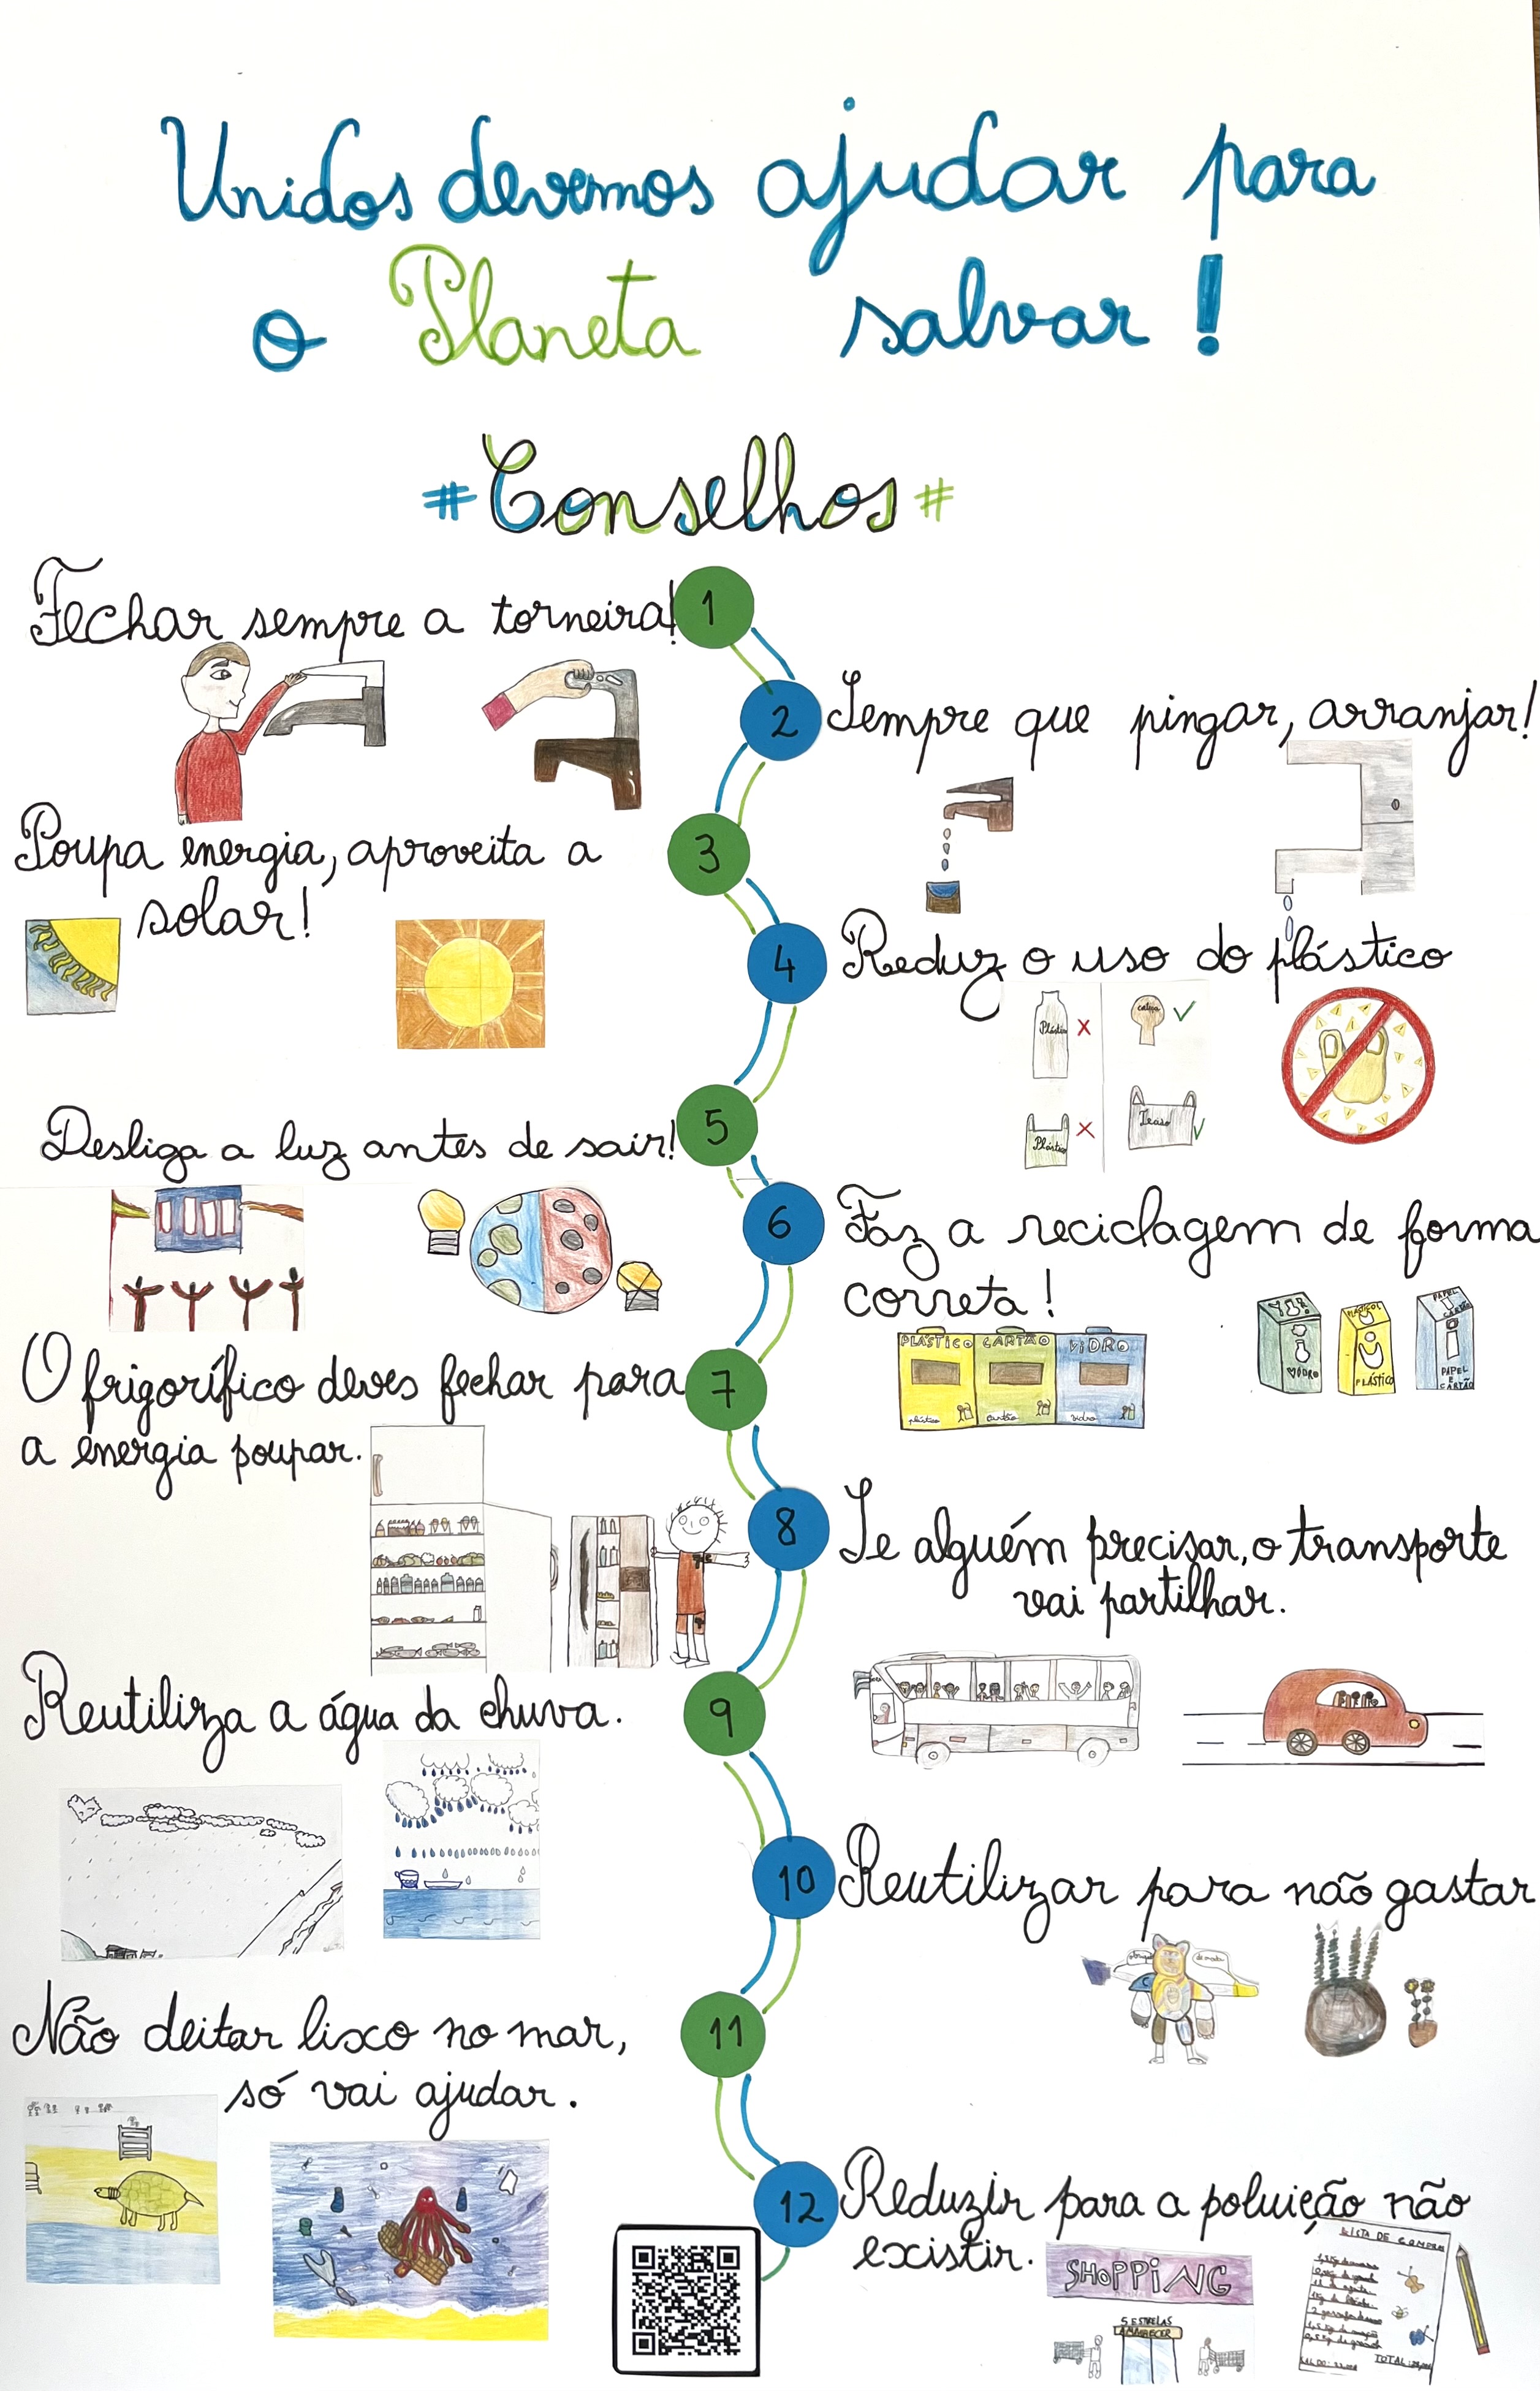 Unidos devemos ajudar para
o Planeta salvar!
#Conselhos#
Fechar sempre a torneira!
1
2
Sempre que pingar, arranjar!
Poupa energia, aproveita a
solar!
3
4
Reduz o uso do plástico
Plástico
Plástico
Desliga a luz antes de sair!
5
6
Faz a reciclagem de forma
correta!
PLÁSTICO CARTÃO VIDRO
plástico cartão vidro
VIDRO
PLÁSTICO
PAPEL
CARTÃO
PAPEL
E
CARTÃO
O frigorífico deves fechar para
a energia poupar.
7
8
Se alguém precisar, o transporte
vai partilhar.
Reutiliza a água da chuva.
9
10
Reutilizar para não gastar
Não deitar lixo no mar,
só vai ajudar.
11
12
Reduzir para a poluição não
existir.
SHOPPING
5 ESTRELAS
AMANHECER
LISTA DE COMPRAS
TOTAL: